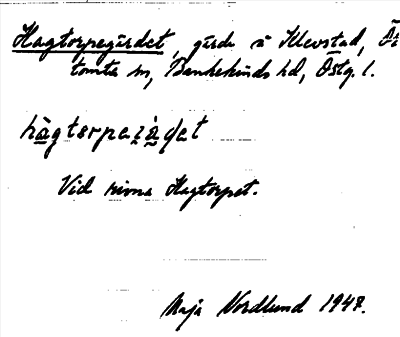 Hagtorpegärdet, gärde å Klevstad, Ö
tomta sn, Bankekinds hd, Östg. l.
hàgtorpeɹ̣àḍet
Vid rivna Hagtorpet.
Maja Nordlund 1947.